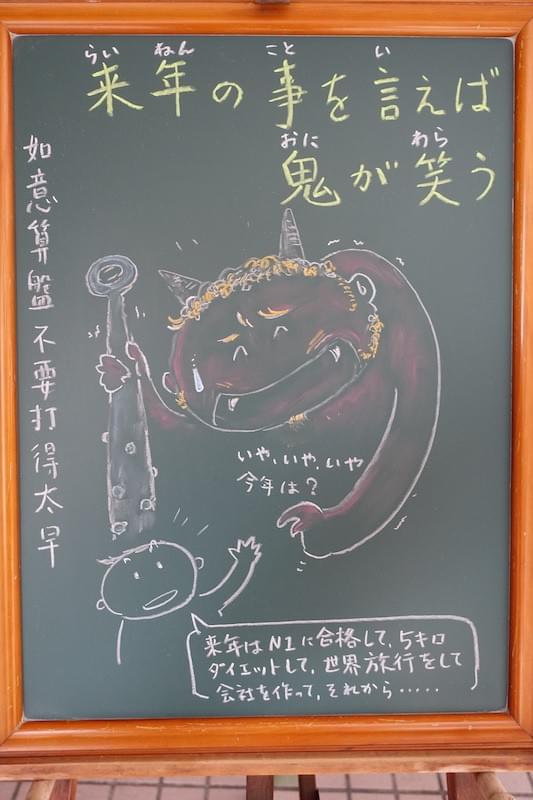 らいねん こと い
来年の事を言えば
おに わら
鬼が笑う
如意算盤不要打得太早
いや、いや、いや
今年は？
来年はN1に合格して、5キロ
ダイエットして、世界旅行をして
会社を作って、それから・・・・・